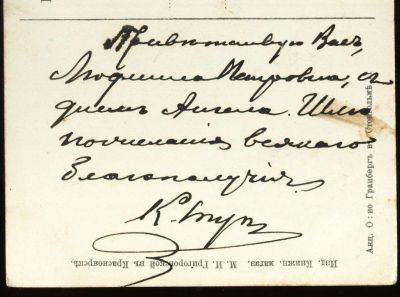 Привѣтствую Васъ,
Людмила Петровна, съ
днемъ Ангела. Шлю
пожелания всякаго
благополучія.
Изд. Книжн. магаз. М. И. Григоровской въ Красноярскѣ.
Акц. О-во Гранбергъ въ Стокгольмѣ